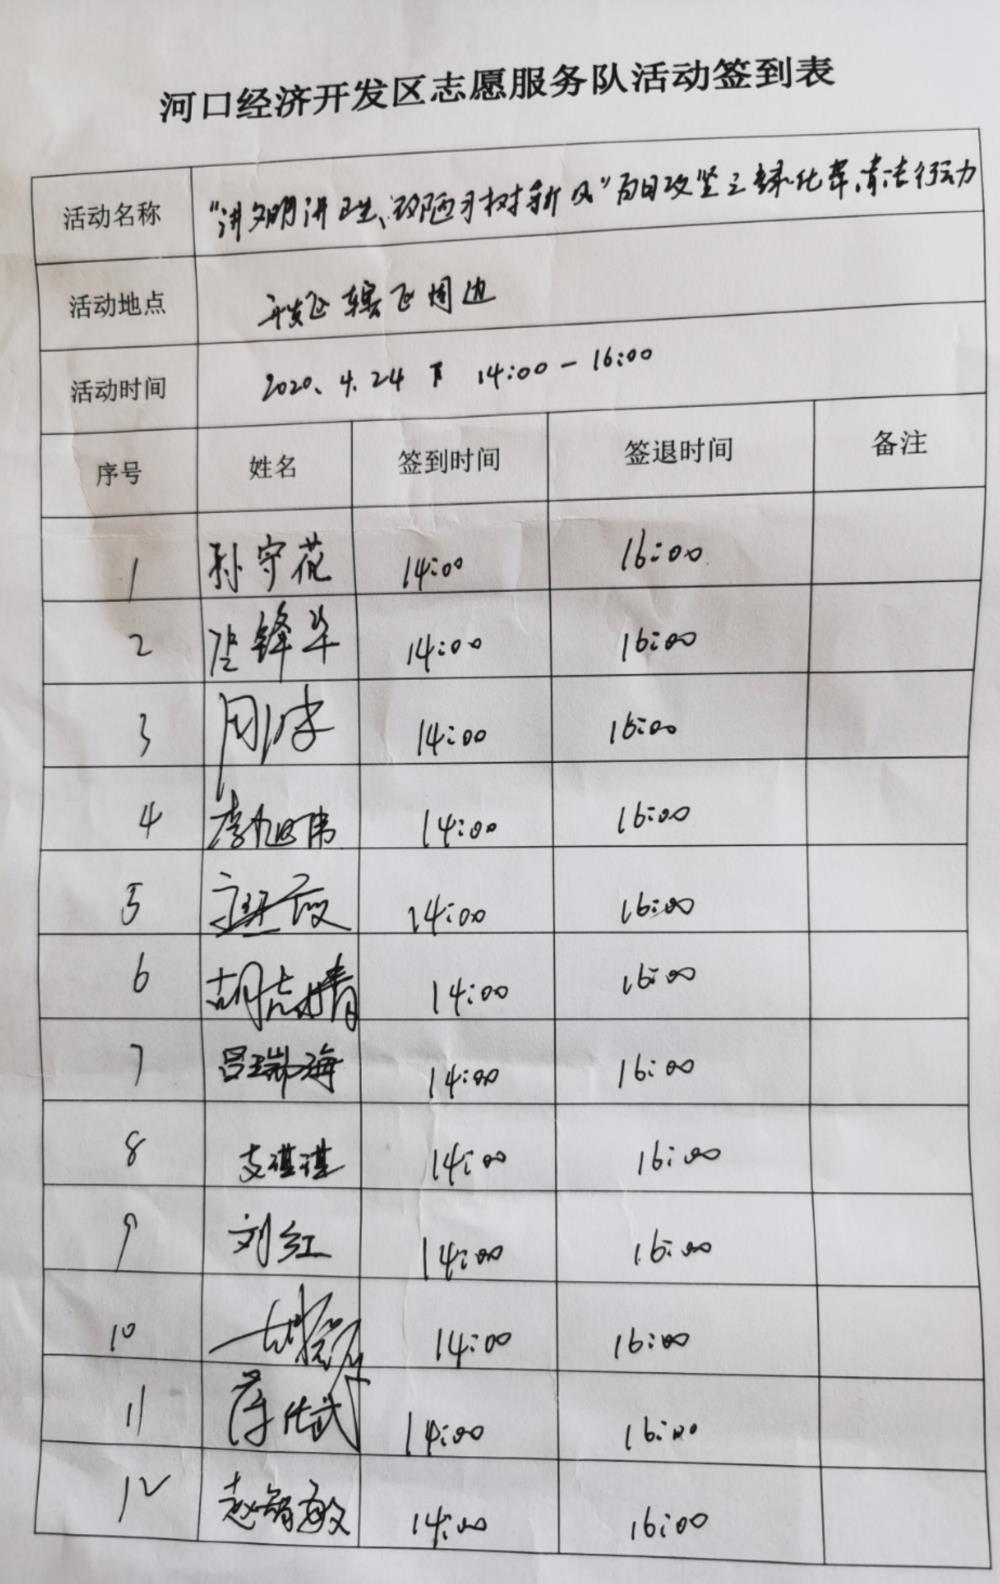 河口经济开发区志愿服务队活动签到表
活动名称 "讲文明讲卫生、破陋习树新风"百日攻坚之绿化带清洁行动
活动地点 开发区辖区周边
活动时间 2020.4.24 下 14:00-16:00
序号 姓名 签到时间 签退时间 备注
1 孙守花 14:00 16:00
2 张锋华 14:00 16:00
3 周 14:00 16:00
4 李旭伟 14:00 16:00
5 14:00 16:00
6 胡志婧 14:00 16:00
7 吕瑞海 14:00 16:00
8 支琪琪 14:00 16:00
9 刘红 14:00 16:00
10 14:00 16:00
11 薛仕武 14:00 16:00
12 赵智敏 14:00 16:00